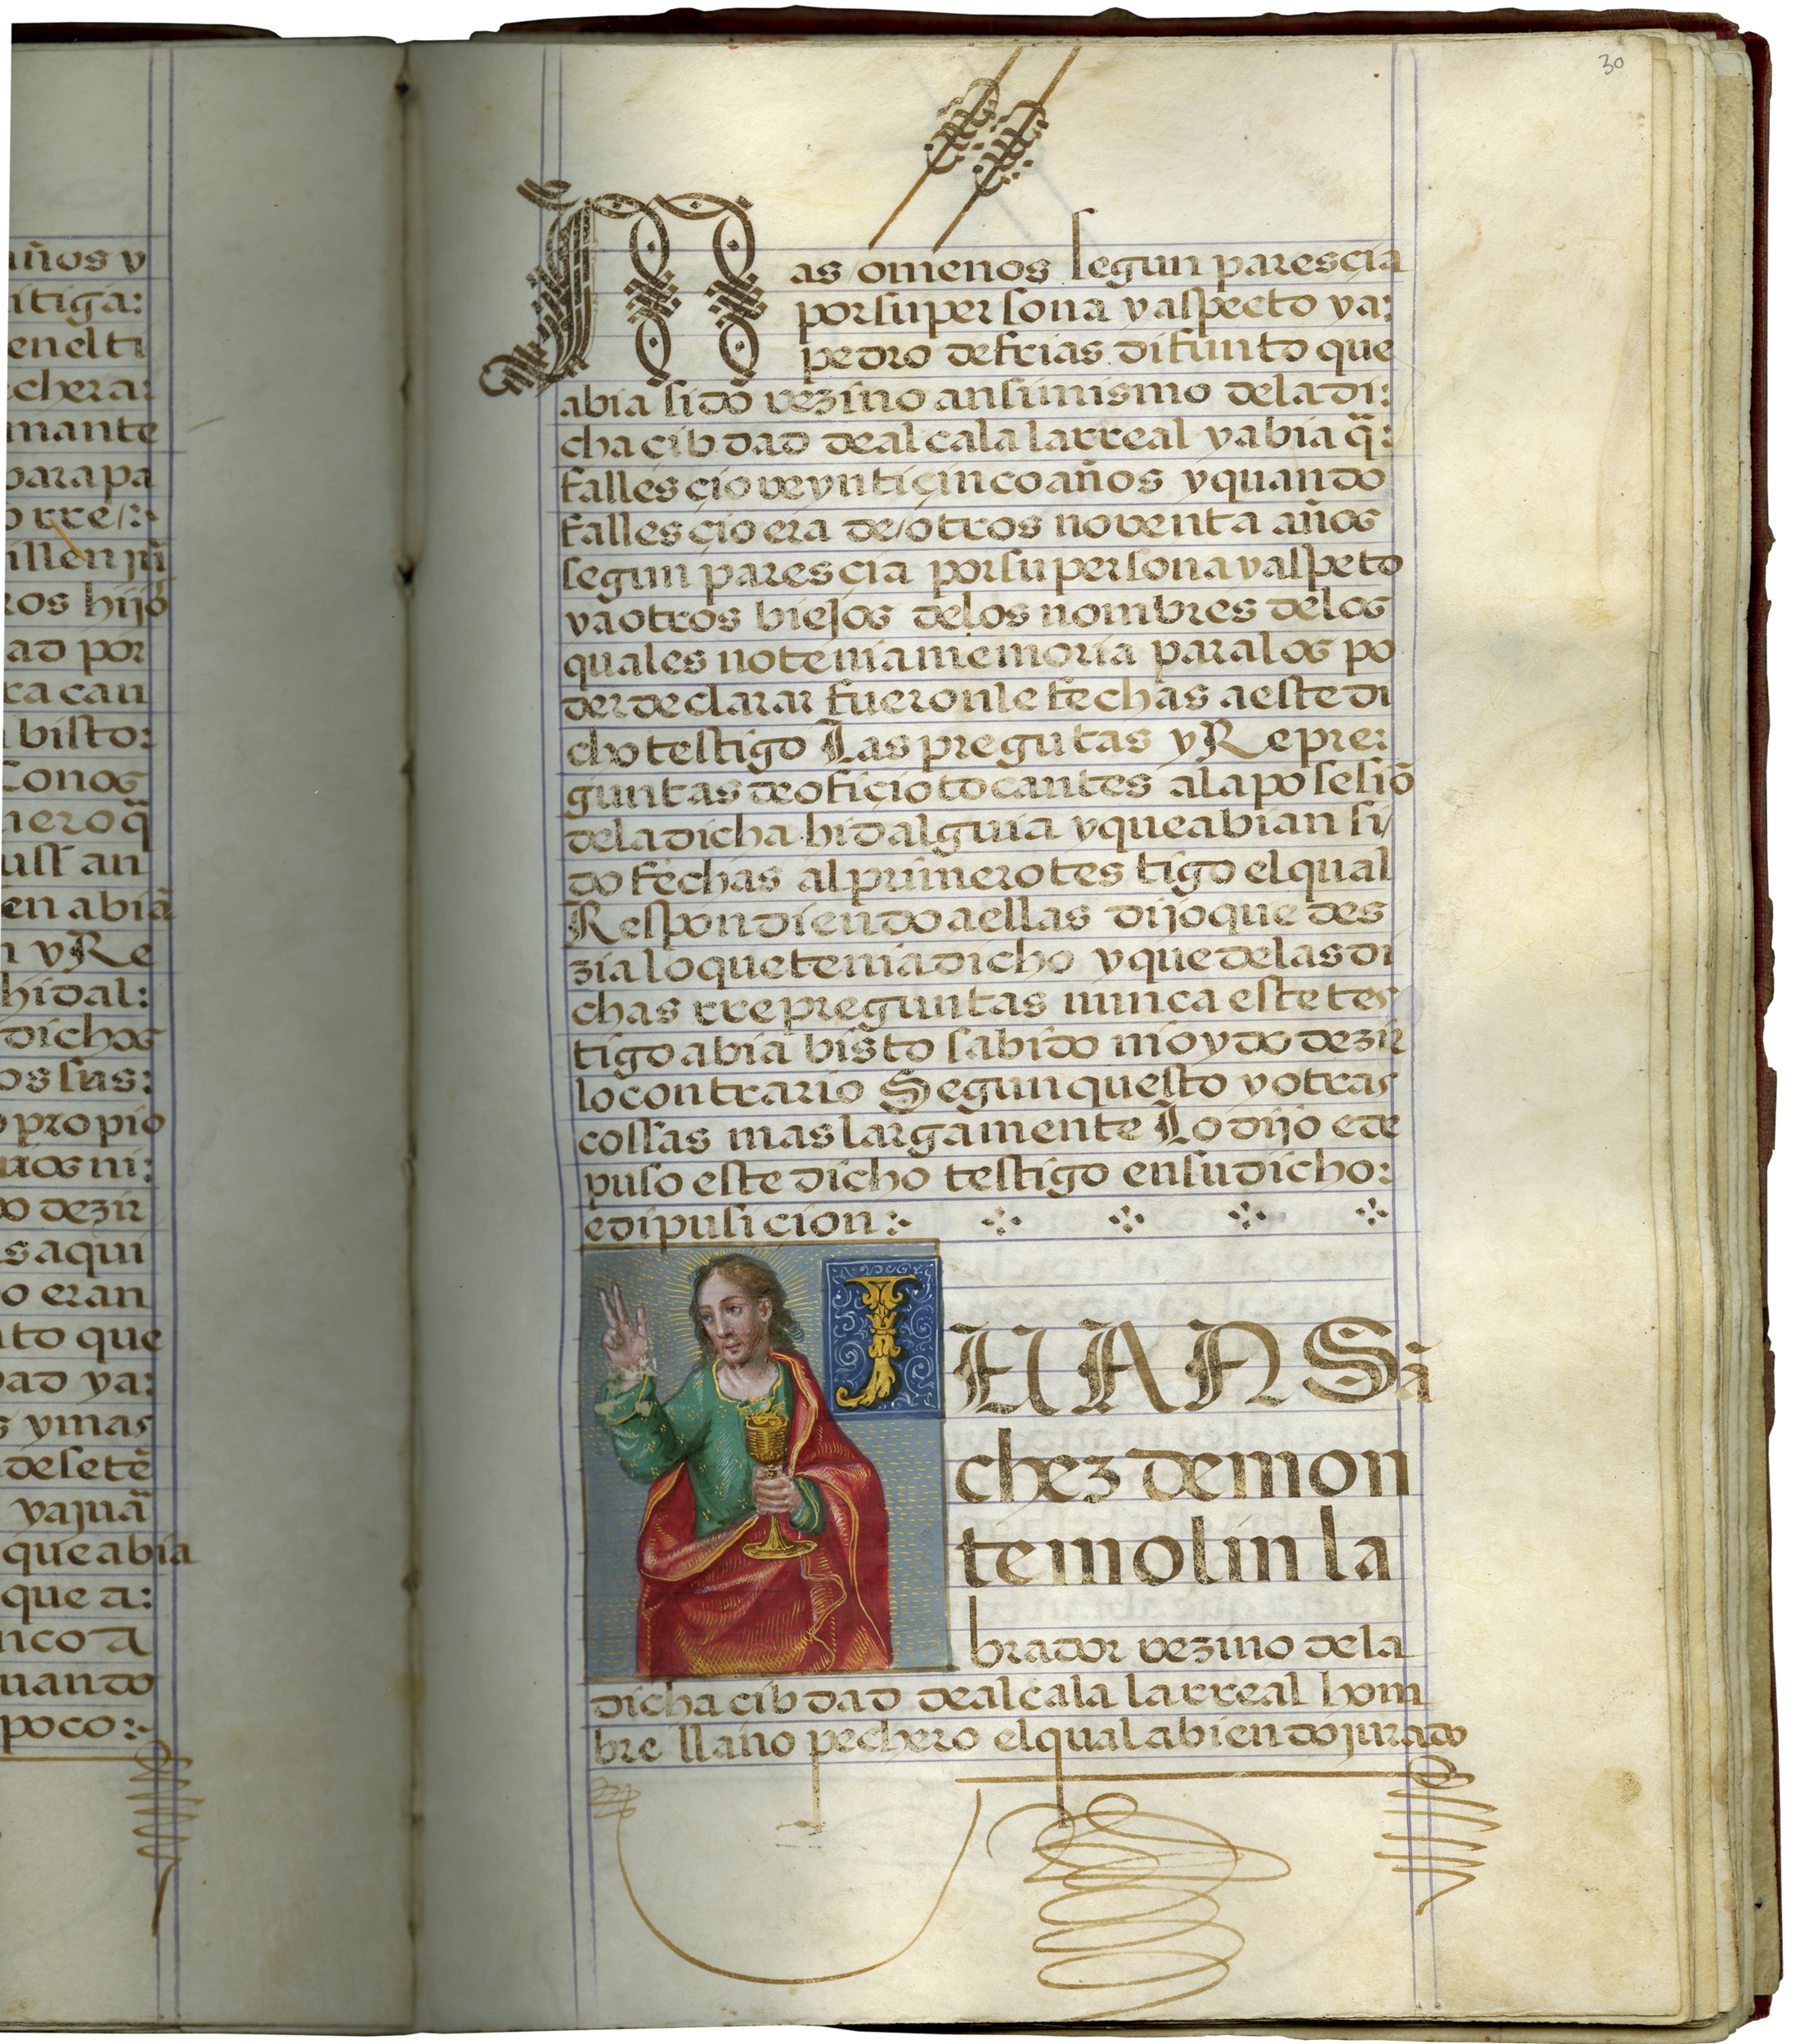 años y
itiga:
en el ti
echera:
mante
para pa
o rre/:~
illen jũ
ros hijo
ad por
ra can
bisto:
Conos
nero q̃
uss an
en abiã
n y Re
hidal:
dichos
os sus:
propio
rios ni:
do dezir
s aqui
o eran
nto que
dad ya:
s y mas
de setẽ
y a juã
que abia
que a:
nco a
uando
poco:~
30
Mas omenos segun parescia
por su persona y aspecto ya:
pedro de frias difunto que
abia sido vezino ansimismo de la di:
cha cibdad de alcala larreal y abia q̃:
fallescio veynti çinco años y quando
fallescio era de/otros noventa años
segun parescia por su persona y aspeto
y a otros biejos de los nombres de los
quales no tenia memoria para los po
der declarar fueronle fechas a este di
cho testigo Las pregutas y Repre:
guntas de ofiçio tocantes a la posesiõ
de la dicha hidalguia y que abian si/
do fechas al primero testigo el qual
Respondiendo a ellas dijo que des
zia lo que tenia dicho y que de las di
chas rrepreguntas nunca este tes
tigo abia bisto sabido ni oydo dezir
lo contrario Segun questo y otras
cossas mas largamente Lo dijo e de
puso este dicho testigo en su dicho:
e dipusicion:~
JUAN Sã
chez de mon
temolin la
brador vezino de la
dicha cibdad de alcala larreal hom
bre llano pechero el qual abiendo jurado